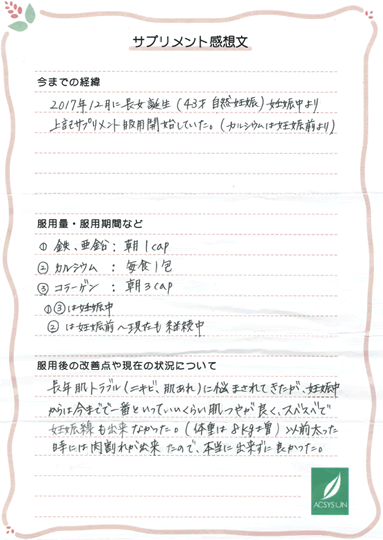 サプリメント感想文
今までの経緯
2017年12月に長女誕生(43才 自然妊娠)妊娠中より
上記サプリメント服用開始していた。(カルシウムは妊娠前より)
服用量・服用期間など
① 鉄、亜鉛：朝1cap
② カルシウム ： 毎食1包
③ コラーゲン ： 朝3cap
①③は妊娠中
②は妊娠前〜現在も継続中
服用後の改善点や現在の状況について
長年肌トラブル(ニキビ、肌あれ)に悩まされてきたが、妊娠中
からは今までで一番といっていいくらい肌つやが良く、スベスベで
妊娠線も出来なかった。(体重は8kg増)以前太った
時には肉割れが出来たので、本当に出来ずに良かった。
ACSYSUN